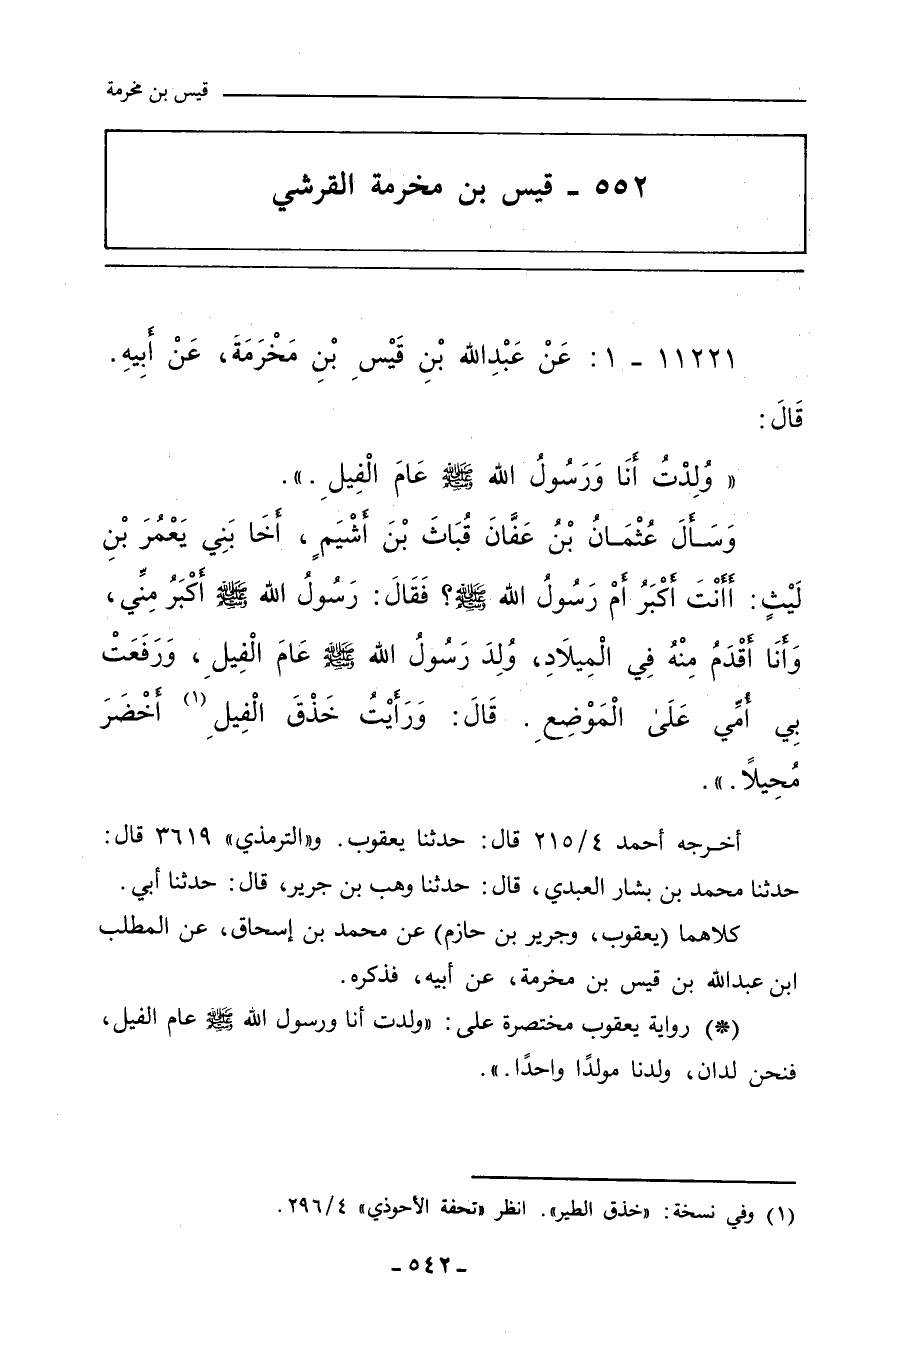 قيس بن مخرمة
٥٥٢ ـ قيس بن مخرمة القرشي
١١٢٢١ ـ ١: عَنْ عَبْدِالله بْنِ قَيْسِ بْنِ مَخْرَمَةَ، عَنْ أَبِيهِ.
قَالَ:
« وُلِدْتُ أَنَا وَرَسُولُ الله ﷺ عَامَ الْفِيلِ.».
وَسَـأَلَ عُثْمَـانُ بْنُ عَفَّانَ قُبَاثَ بْنَ أَشْيَمٍ، أَخَا بَنِي يَعْمُرَ بْنِ
لَيْثٍ: أَأَنْتَ أَكْبَرُ أَمْ رَسُولُ الله ﷺ؟ فَقَالَ: رَسُولُ الله ﷺ أَكْبَرُ مِنِّي،
وَأَنَا أَقْدَمُ مِنْهُ فِي الْمِيلَادِ، وُلِدَ رَسُولُ الله ﷺ عَامَ الْفِيلِ، وَرَفَعَتْ
بِي أُمِّي عَلَىٰ الْمَوْضِعِ. قَالَ: وَرَأَيْتُ خَذْقَ الْفِيلِ(١) أَخْضَرَ
مُحِيلًا.».
أخـرجه أحمد ٢١٥/٤ قال: حدثنا يعقوب. و«الترمذي» ٣٦١٩ قال:
حدثنا محمد بن بشار العبدي، قال: حدثنا وهب بن جرير، قال: حدثنا أبي.
كلاهما (يعقوب، وجرير بن حازم) عن محمد بن إسحاق، عن المطلب
ابن عبدالله بن قيس بن مخرمة، عن أبيه، فذكره.
(*) رواية يعقوب مختصرة على: «ولدت أنا ورسول الله ﷺ عام الفيل،
فنحن لدان، ولدنا مولدًا واحدًا.».
(١) وفي نسخة: «خذق الطير». انظر «تحفة الأحوذي» ٢٩٦/٤.
ـ ٥٤٢ ـ